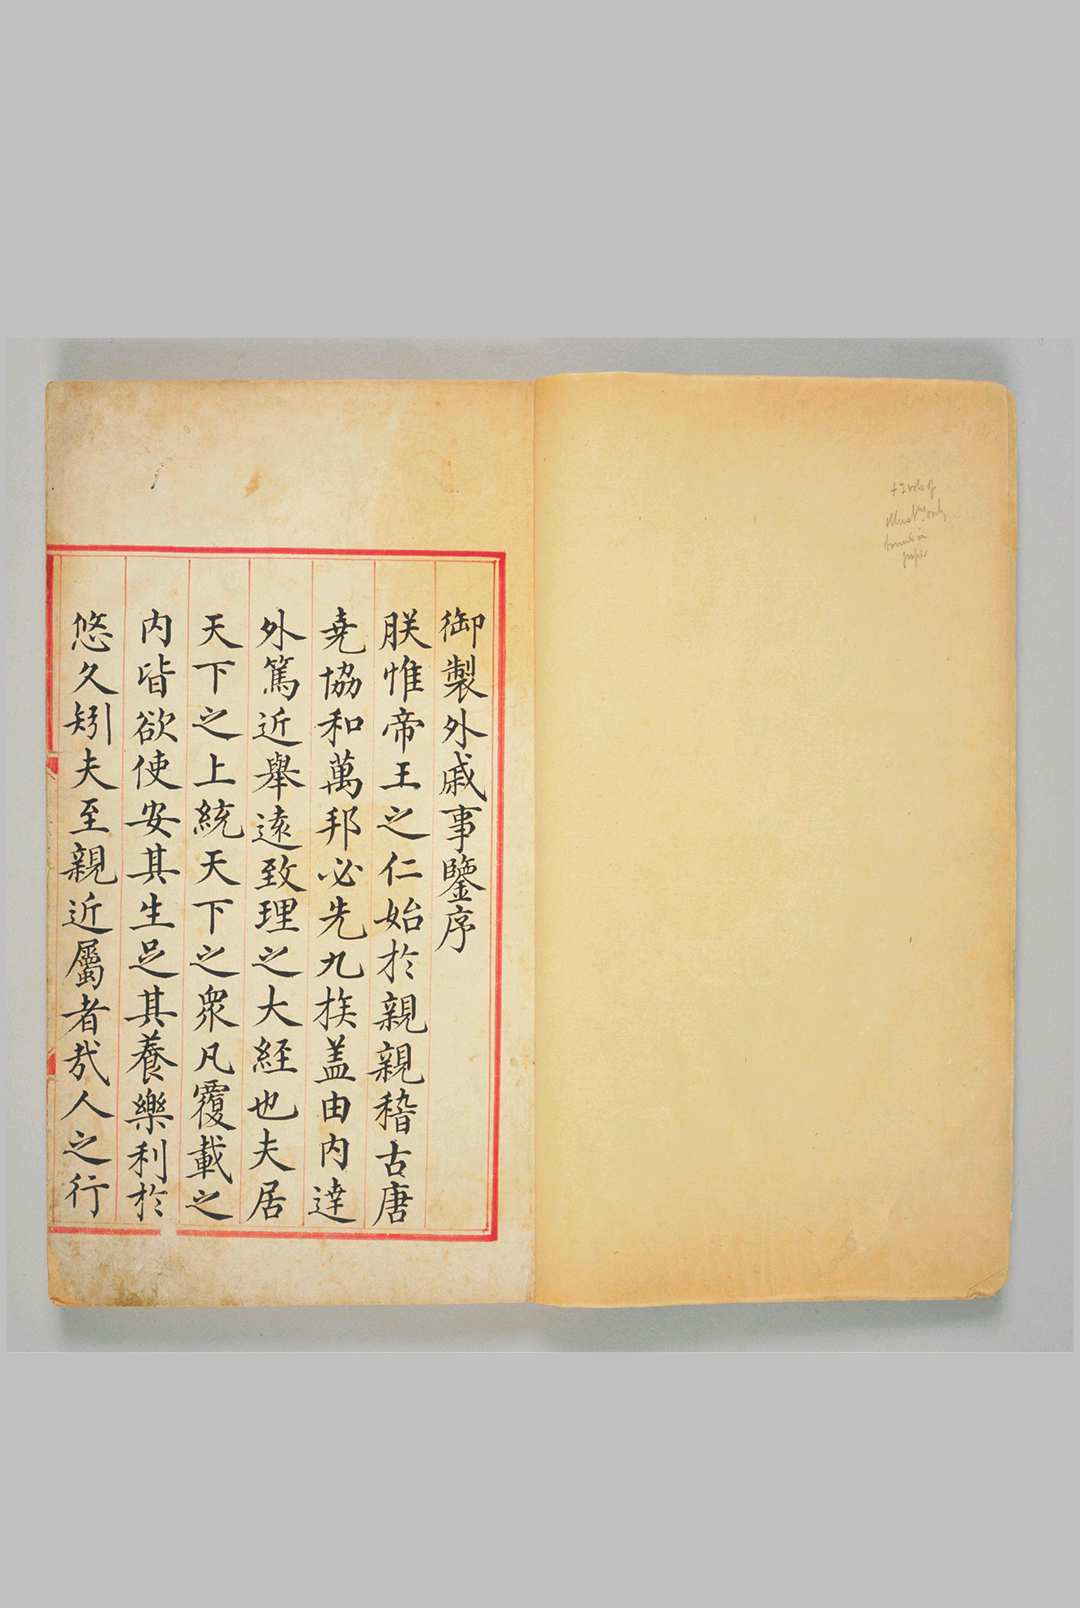 御製外戚事鑒序
朕惟帝王之仁始於親親稽古唐
堯協和萬邦必先九族盖由内達
外篤近舉遠致理之大經也夫居
天下之上統天下之衆凡覆載之
内皆欲使安其生足其養樂利於
悠久矧夫至親近屬者㢤人之行